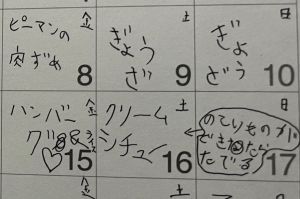 ピーマンの 金
肉ずめ
8
土
ぎょう
ざ
9
日
ぎょ
ざう
10
ハンバー 金
グ&ライス
♡15
クリーム 土
シチュー
16
日
のこりものが
でき
たでる
17
金
土